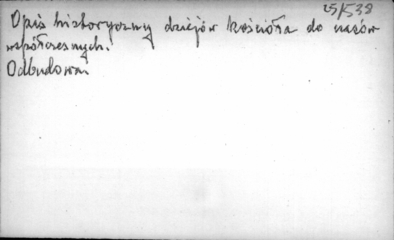 25/538
Opis historyczny dziejów kościoła do czasów
współczesnych.
Odbudowa.